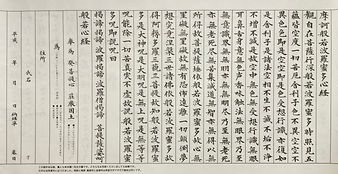 摩訶般若波羅蜜多心経
観自在菩薩行深般若波羅蜜多時照見五
蘊皆空度一切苦厄舎利子色不異空空不
異色色即是空空即是色受想行識亦復如
是舎利子是諸法空相不生不滅不垢不浄
不増不減是故空中無色無受想行識無眼
耳鼻舌身意無色声香味触法無眼界乃至
無意識界無無明亦無無明尽乃至無老死
亦無老死尽無苦集滅道無智亦無得以無
所得故菩提薩埵依般若波羅蜜多故心無
罣礙無罣礙故無有恐怖遠離一切顛倒夢
想究竟涅槃三世諸仏依般若波羅蜜多故
得阿耨多羅三藐三菩提故知般若波羅蜜
多是大神呪是大明呪是無上呪是無等等
呪能除一切苦真実不虚故説般若波羅蜜
多呪即説呪曰
羯諦羯諦波羅羯諦波羅僧羯諦 菩提薩婆訶
般若心経
為
住所
氏名
平成 年 月 日